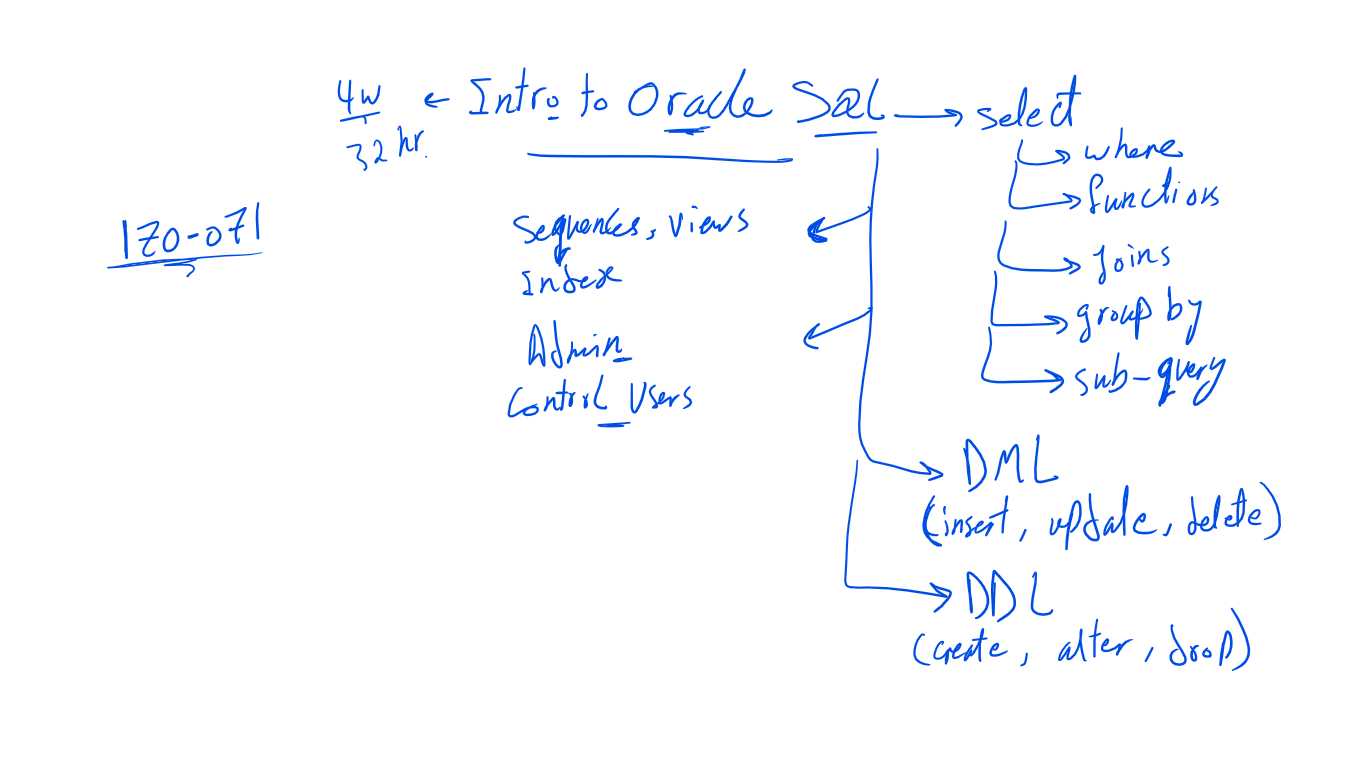 4w ← Intro to Oracle SQL → select
32 hr.
where
functions
joins
group by
sub-query
1Z0-071
Sequences, Views
Index
Admin
Control Users
DML
(insert, update, delete)
DDL
(create, alter, drop)